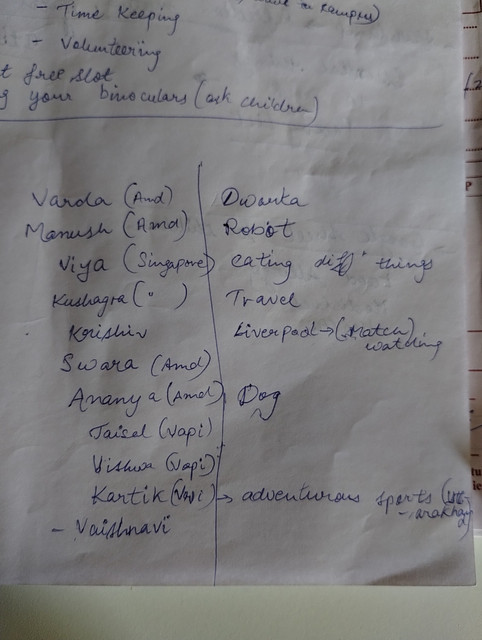 - Time Keeping
- Volunteering
t free slot
g your binoculars (ask children)
Varda (Amd) Dwarka
Manush (Amd) Robot
Viya (Singapore) eating diff things
Kushagra ( " ) Travel
Krishiv Liverpool → (Match) watching
Swara (Amd)
Ananya (Amd) Dog
Jaisel (Vapi)
Vishwa (Vapi)
Kartik (Vapi) → adventurous sports (Utt-arakhand)
- Vaishnavi